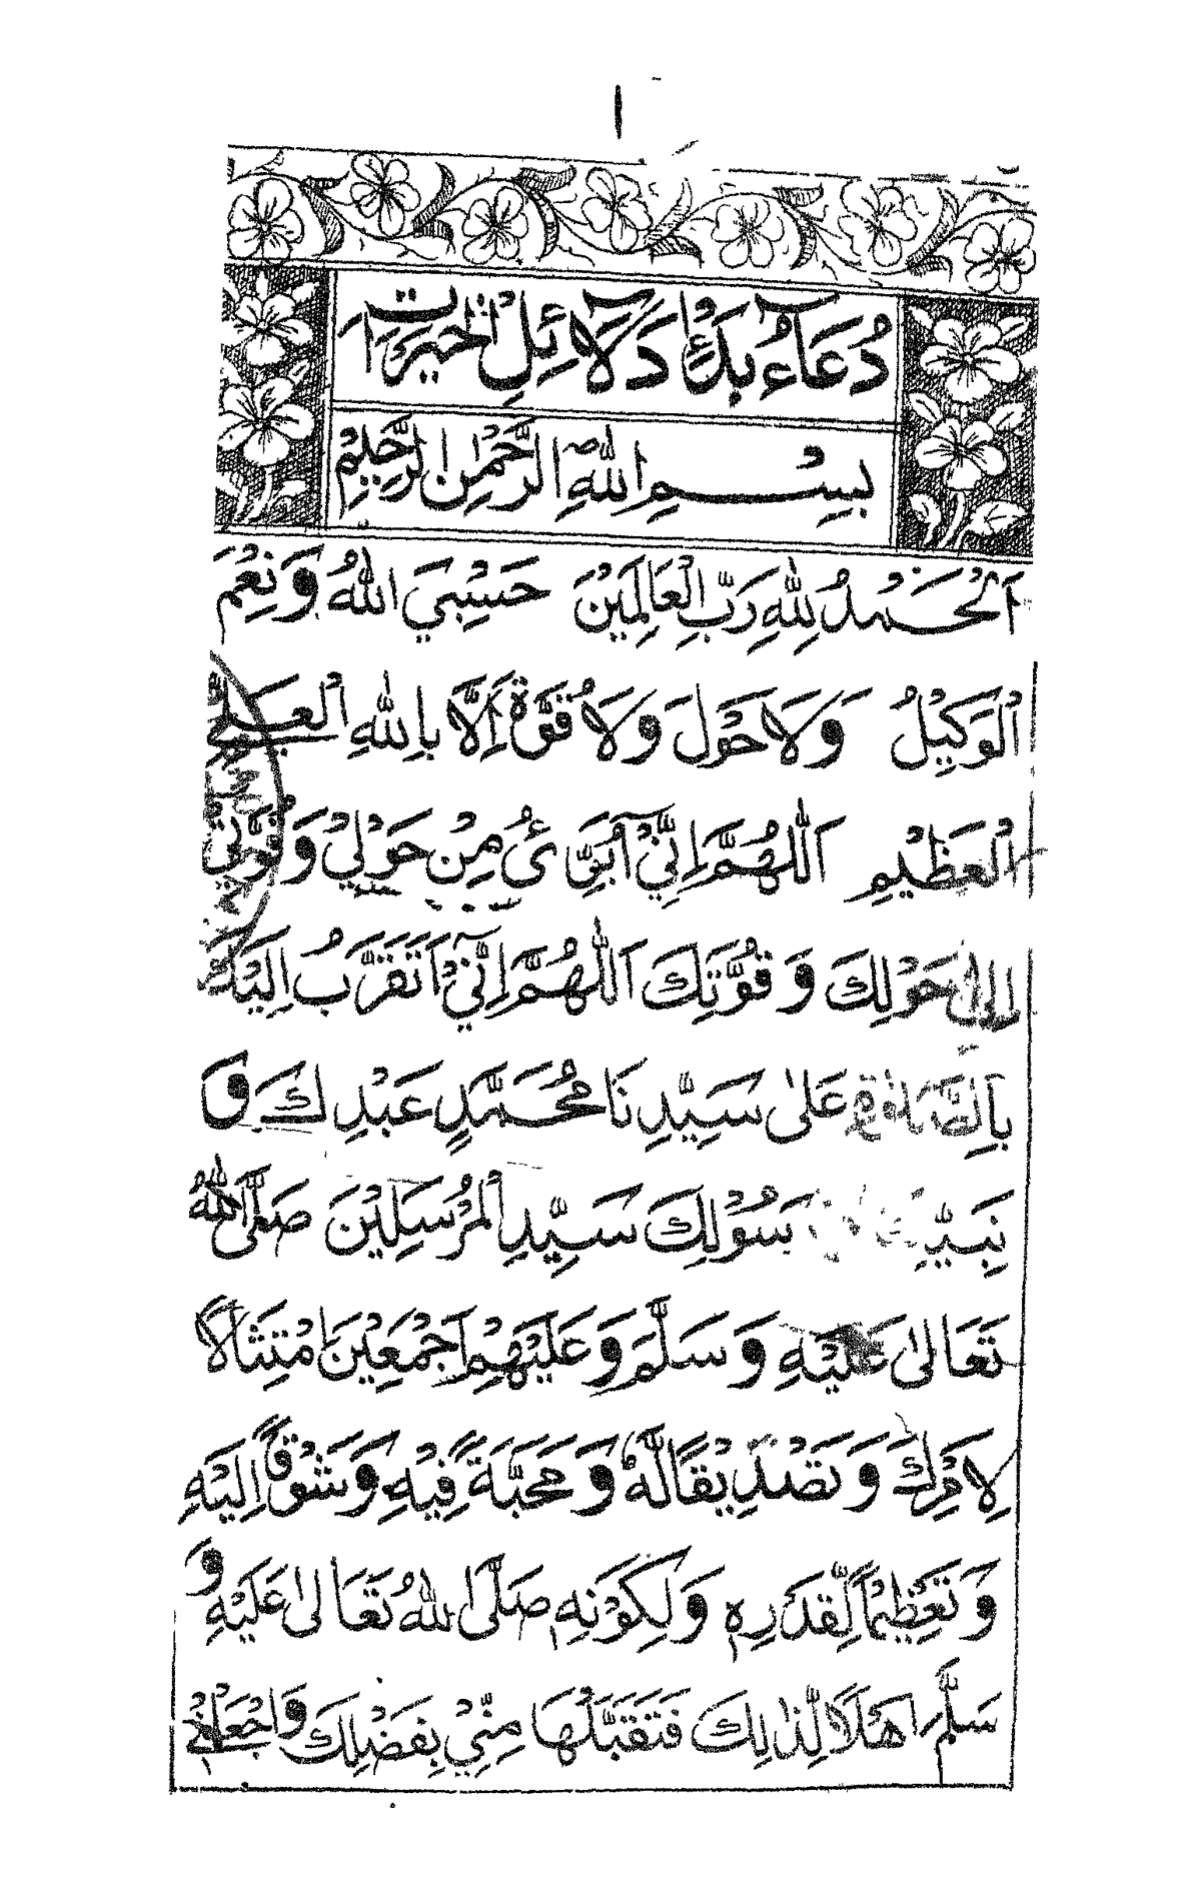 ١
دُعَآءُ بَدْءِ دَلَآئِلِ الْخَيْرَاتِ
بِسْمِ اللهِ الرَّحْمٰنِ الرَّحِيْمِ
اَلْحَمْدُ لِلّٰهِ رَبِّ الْعَالَمِيْنَ حَسْبِيَ اللهُ وَنِعْمَ
الْوَكِيْلُ وَلَا حَوْلَ وَلَا قُوَّةَ اِلَّا بِاللهِ الْعَلِيِّ
الْعَظِيْمِ اَللّٰهُمَّ اِنِّيْٓ اُبَرِّئُ مِنْ حَوْلِيْ وَقُوَّتِيْ
اِلٰى حَوْلِكَ وَ قُوَّتِكَ اَللّٰهُمَّ اِنِّيْٓ اَتَقَرَّبُ اِلَيْكَ
بِالصَّلٰوةِ عَلٰى سَيِّدِنَا مُحَمَّدٍ عَبْدِكَ وَ
نَبِيِّكَ وَرَسُوْلِكَ سَيِّدِ الْمُرْسَلِيْنَ صَلَّى اللهُ
تَعَالٰى عَلَيْهِ وَسَلَّمَ وَعَلَيْهِمْ اَجْمَعِيْنَ امْتِثَالًا
لِاَمْرِكَ وَتَصْدِيْقًا لَّهٗ وَمَحَبَّةً فِيْهِ وَشَوْقًا اِلَيْهِ
وَتَعْظِيْمًا لِّقَدْرِهٖ وَلِكَوْنِهٖ صَلَّى اللهُ تَعَالٰى عَلَيْهِ وَ
سَلَّمَ اَهْلًا لِّذٰلِكَ فَتَقَبَّلْهَا مِنِّيْ بِفَضْلِكَ وَاجْعَلْنِيْ